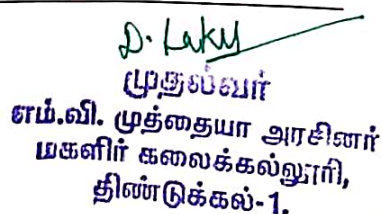 D. Laky
முதல்வர்
எம்.வி. முத்தையா அரசினர்
மகளிர் கலைக்கல்லூரி,
திண்டுக்கல்-1.